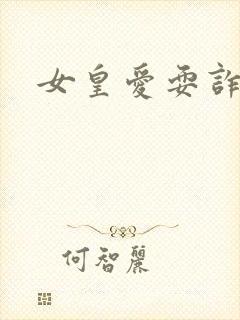 女皇愛耍詐
何智麗